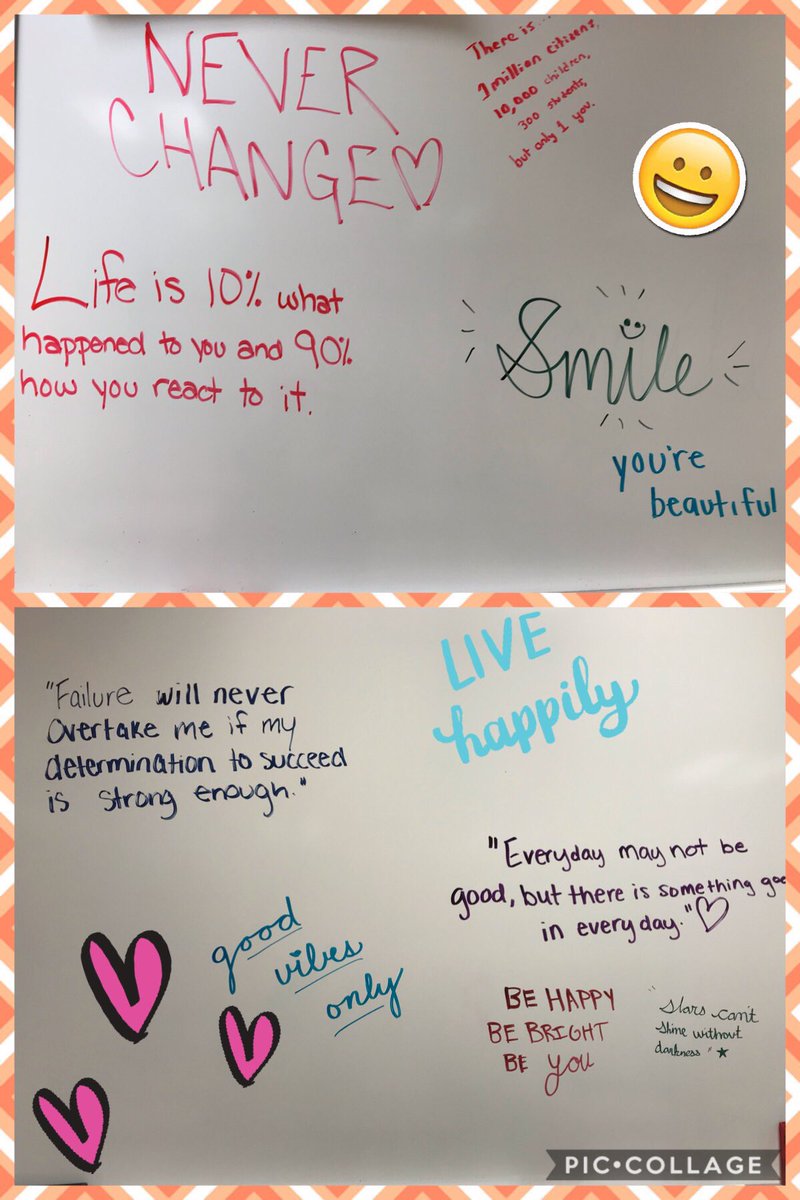 NEVER
CHANGE
There is...
1 million citizens,
10,000 children,
300 students,
but only 1 you.
Life is 10% what
happened to you and 90%
how you react to it.
Smile
you're
beautiful
LIVE
happily
"Failure will never
overtake me if my
determination to succeed
is strong enough."
"Everyday may not be
good, but there is something goo
in everyday."
good
vibes
only
BE HAPPY
BE BRIGHT
BE you
"Stars can't
shine without
darkness"
PIC•COLLAGE